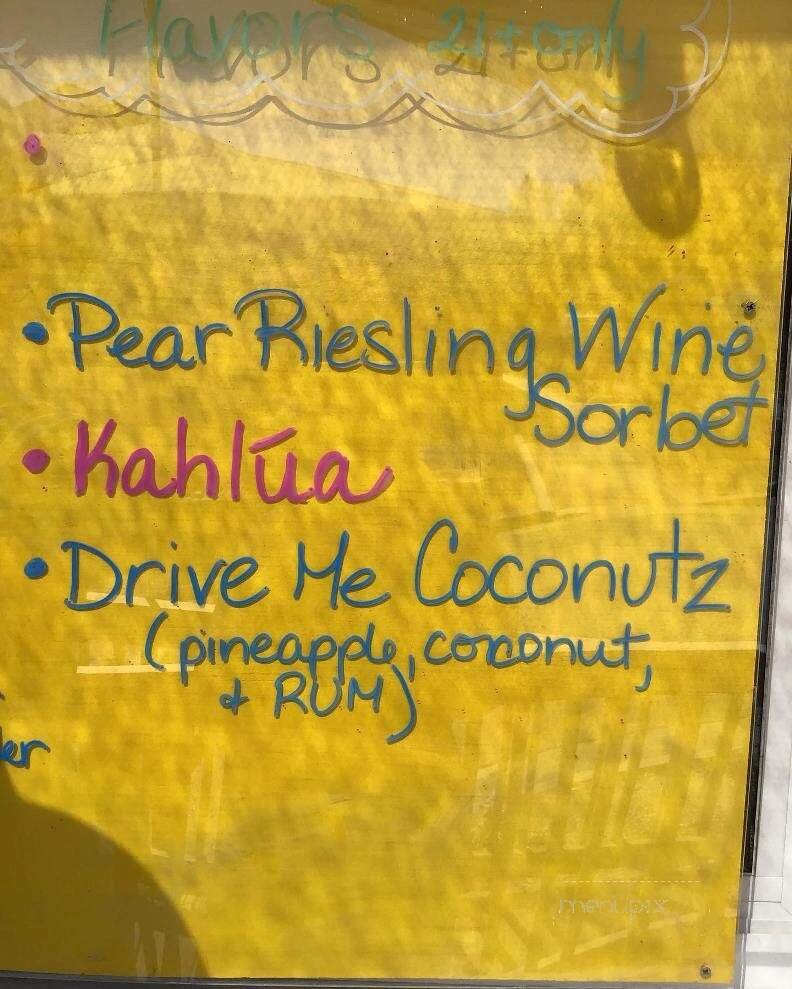 Flavors 21+ only
• Pear Riesling Wine
Sorbet
• Kahlúa
• Drive Me Coconutz
(pineapple, coconut,
& RUM)
er
menupix